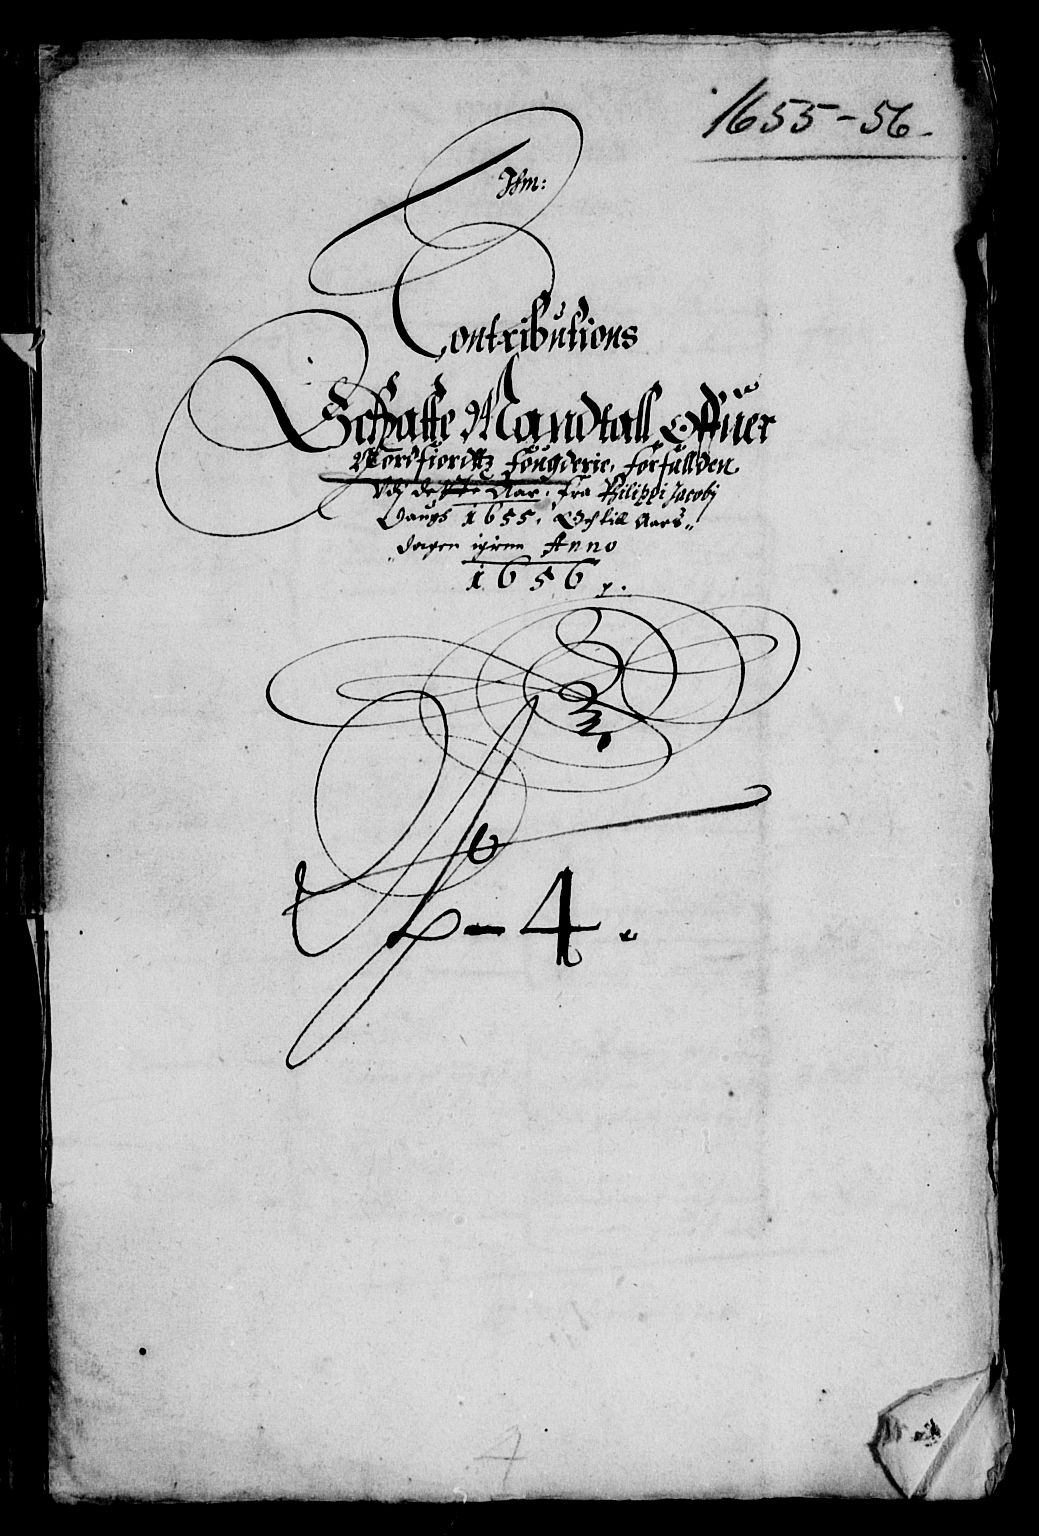 1655-56.
Contributions
Schatte Mandtall Offuer
Nordfiordtz fougderie, forfallden
Udj dette Aar, fra Philippi Jacobj
Daugs 1655, Och till Aars„
„dagen igien Anno
1656
No - 4.
4